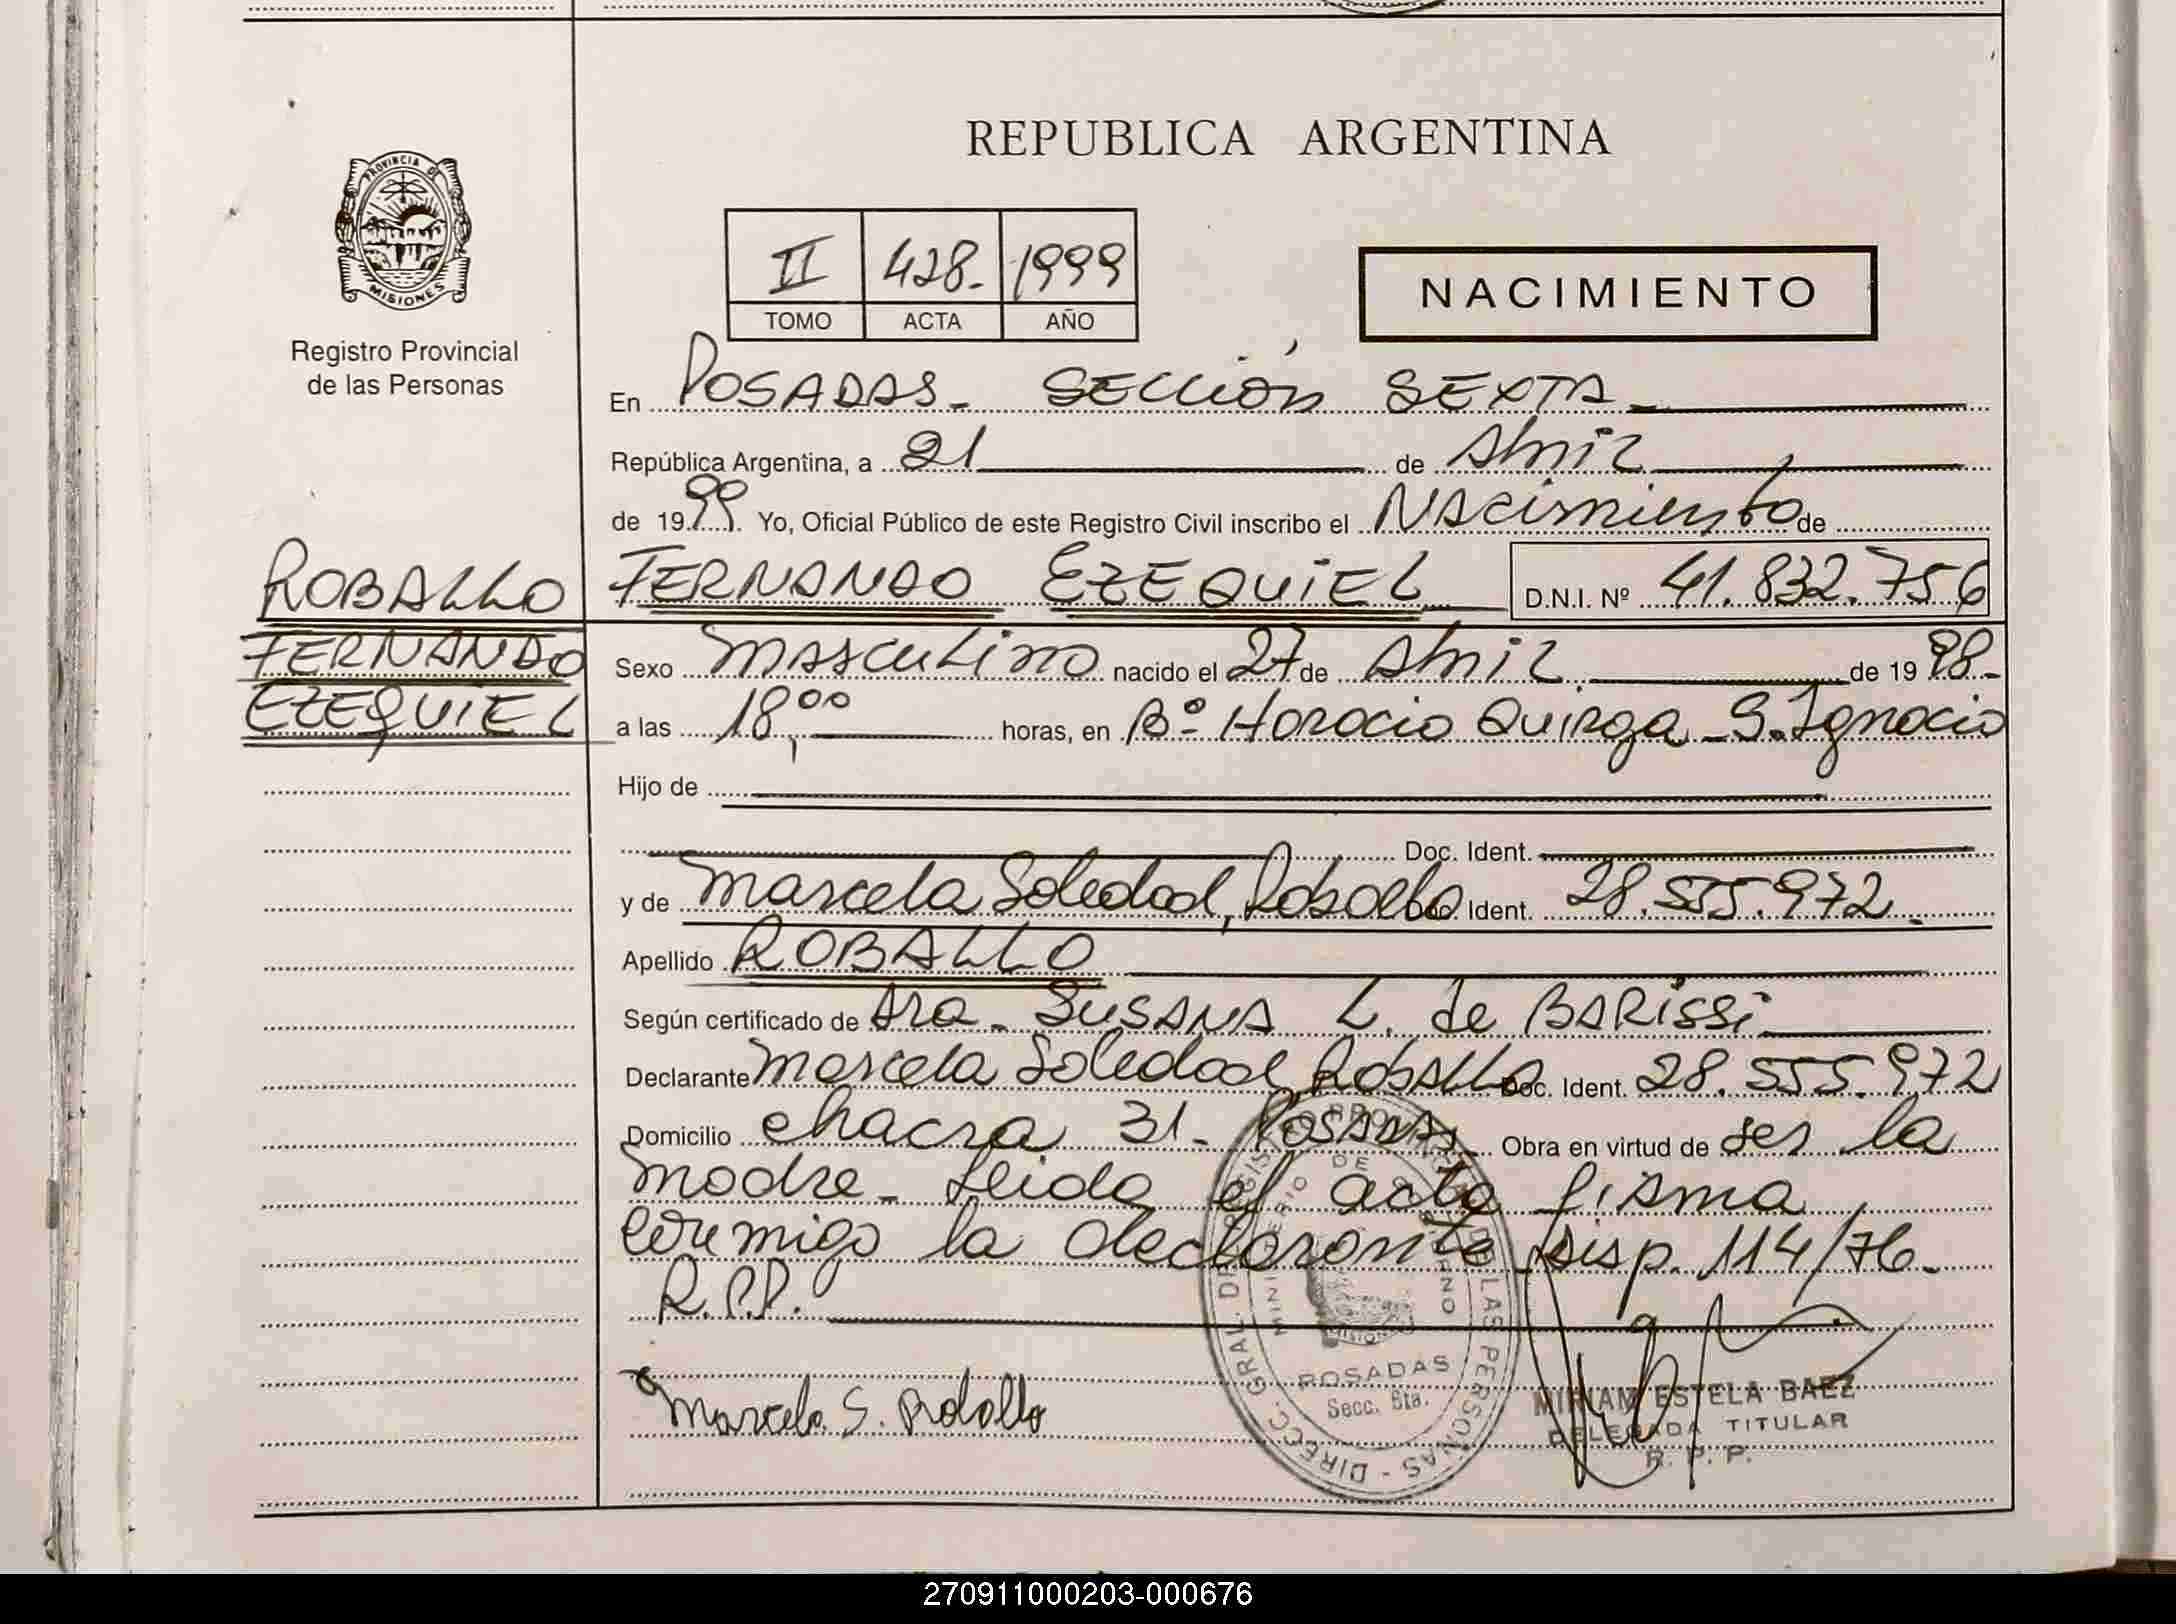 REPUBLICA ARGENTINA
PROVINCIA DE
MISIONES
Registro Provincial
de las Personas
II 428. 1999
TOMO ACTA AÑO
NACIMIENTO
En POSADAS - SECCIÓN SEXTA
República Argentina, a 21 de Abril
de 1999. Yo, Oficial Público de este Registro Civil inscribo el Nacimiento de
ROBALLO
FERNANDO
EZEQUIEL
FERNANDO EZEQUIEL D.N.I. Nº 41.832.756
Sexo Masculino nacido el 27 de Abril de 19 98.-
a las 18,00 horas, en Bº Horacio Quiroga - S. Ignacio
Hijo de
Doc. Ident.
y de Marcela Soledad, Roballo Doc. Ident. 28.555.972.
Apellido ROBALLO
Según certificado de Dra. SUSANA L. de BARISSI
Declarante Marcela Soledad Roballo Doc. Ident. 28.555.972
Domicilio chacra 31 - POSADAS Obra en virtud de ser la
madre - Leida el acta firma
conmigo la declarante Disp. 114/76.-
R.P.P.
Marcela S. Roballo
DIRECC. GRAL. DEL REGISTRO PROVINCIAL DE LAS PERSONAS -
MINISTERIO DE GOBIERNO
MISIONES
POSADAS
Secc. 6ta.
MIRIAM ESTELA BAEZ
DELEGADA TITULAR
R. P. P.
270911000203-000676